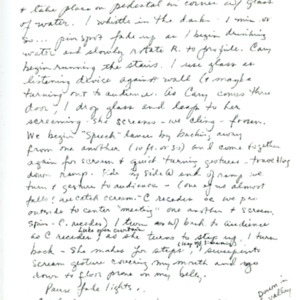 & take place on pedestal in corner w/ glass
of water. I whistle in the dark. 1 min. or
so... pin spot fade up as I begin drinking
water and slowly rotate R. to profile. Cary
begins running the stairs. I use glass as
listening device against wall (& maybe
turning out to audience. As Cary comes thru
door - I drop glass and leap to her
screaming - she screams - we cling - frozen.
We begin "Speech" dance by backing away
from one another (10 ft. or so) and come together
again for scream & quick turning gestures - together
down ramp. Side by side @ end of ramp we
turn & gesture to audience - (one of us almost
falls & are catch scream. C recedes as we
outside to center "meeting" one another & scream,
spin - C. recedes) I turn w/ back to audience
Lake give curtain
as C recedes, as she turns to step up, I turn
back - She makes for steps, I
scream gesture covering my mouth and eyes
down to floor prone on my belly.
Pause fade lights.
Down in
valley